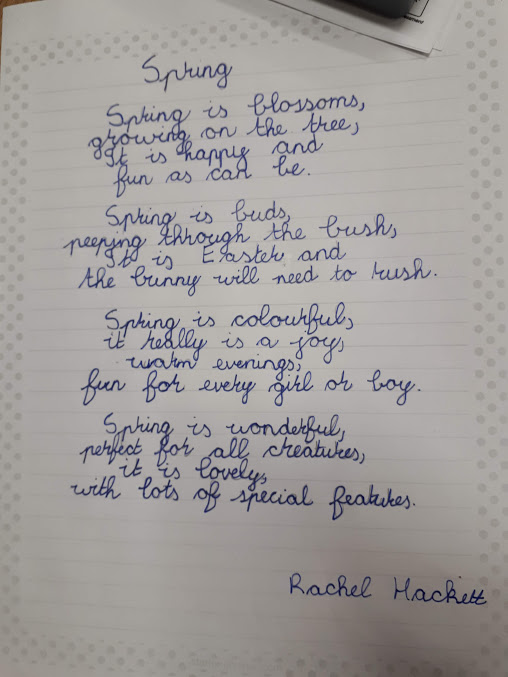 Spring
Spring is blossoms,
growing on the tree,
It is happy and
fun as can be.
Spring is buds,
peeping through the bush,
It is Easter and
the bunny will need to rush.
Spring is colourful,
it really is a joy,
warm evenings,
fun for every girl or boy.
Spring is wonderful,
perfect for all creatures,
it is lovely,
with lots of special features.
Rachel Hackett